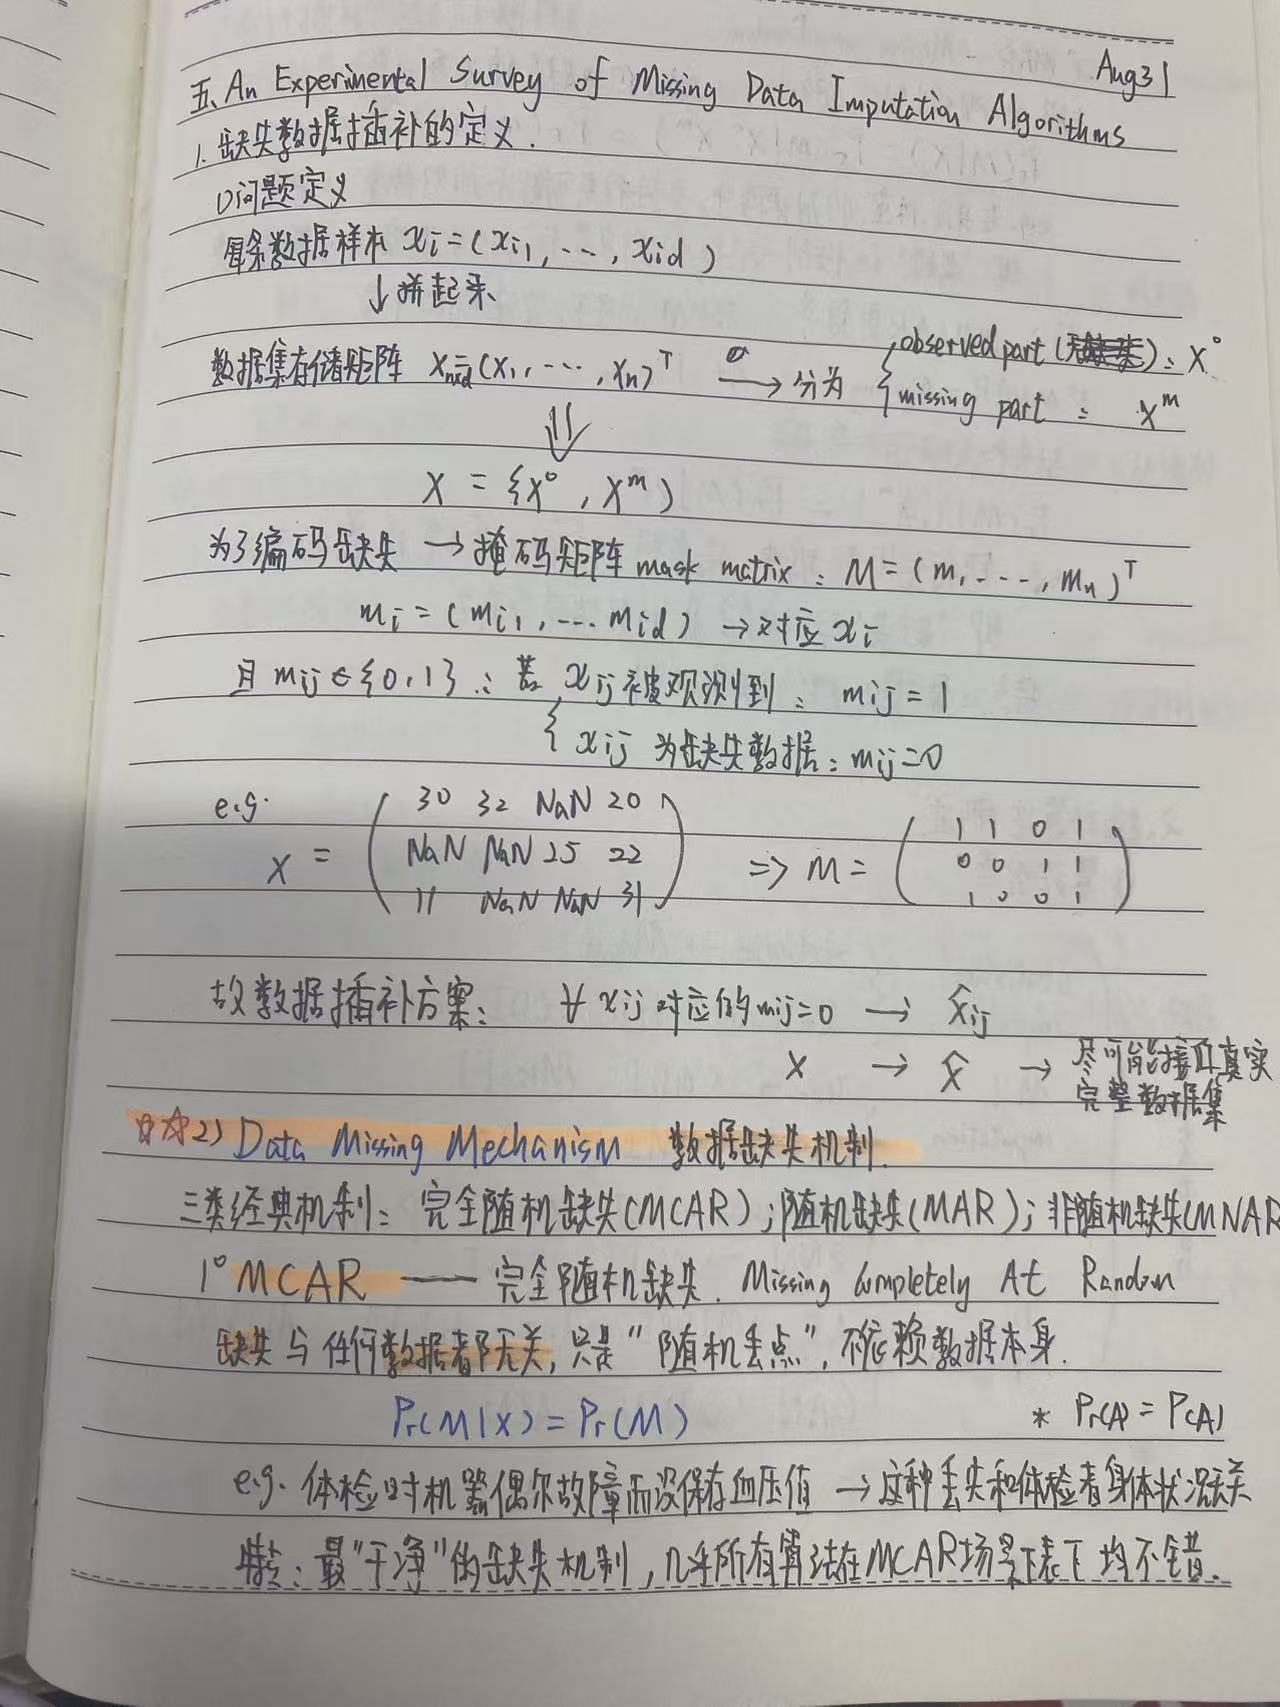 Aug31
五、An Experimental Survey of Missing Data Imputation Algorithms
1. 缺失数据插补的定义.
1)问题定义
每条数据样本 xi=(xi1, ..., xid)
↓拼起来
数据集存储矩阵 Xn×d=(x1, ..., xn)^T → 分为 { observed part ( ): X^o
missing part : X^m
X = {X^o, X^m)
为了编码缺失 → 掩码矩阵 mask matrix: M=(m1, ..., mn)^T
mi=(mi1, ... mid) → 对应 xi
且 mij∈{0,1}: 若 { xij 被观测到: mij=1
xij 为缺失数据: mij=0
e.g.
X = ( 30 32 NaN 20
NaN NaN 25 22
11 NaN NaN 31 ) => M = ( 1 1 0 1
0 0 1 1
1 0 0 1 )
故数据插补方案: ∀ xij 对应的 mij=0 → x̂ij
X → X̂ → 尽可能接近真实
完整数据集
☆☆2) Data Missing Mechanism 数据缺失机制.
三类经典机制: 完全随机缺失(MCAR); 随机缺失(MAR); 非随机缺失(MNAR
1° MCAR —— 完全随机缺失. Missing Completely At Random
缺失与任何数据都无关, 只是“随机丢点”, 不依赖数据本身.
Pr(M|X)=Pr(M) * Pr(A)=P(A)
e.g. 体检时机器偶尔故障而没保存血压值 → 这种丢失和体检者身体状况无关
特点: 最“干净”的缺失机制, 几乎所有算法在MCAR场景下表下均不错.